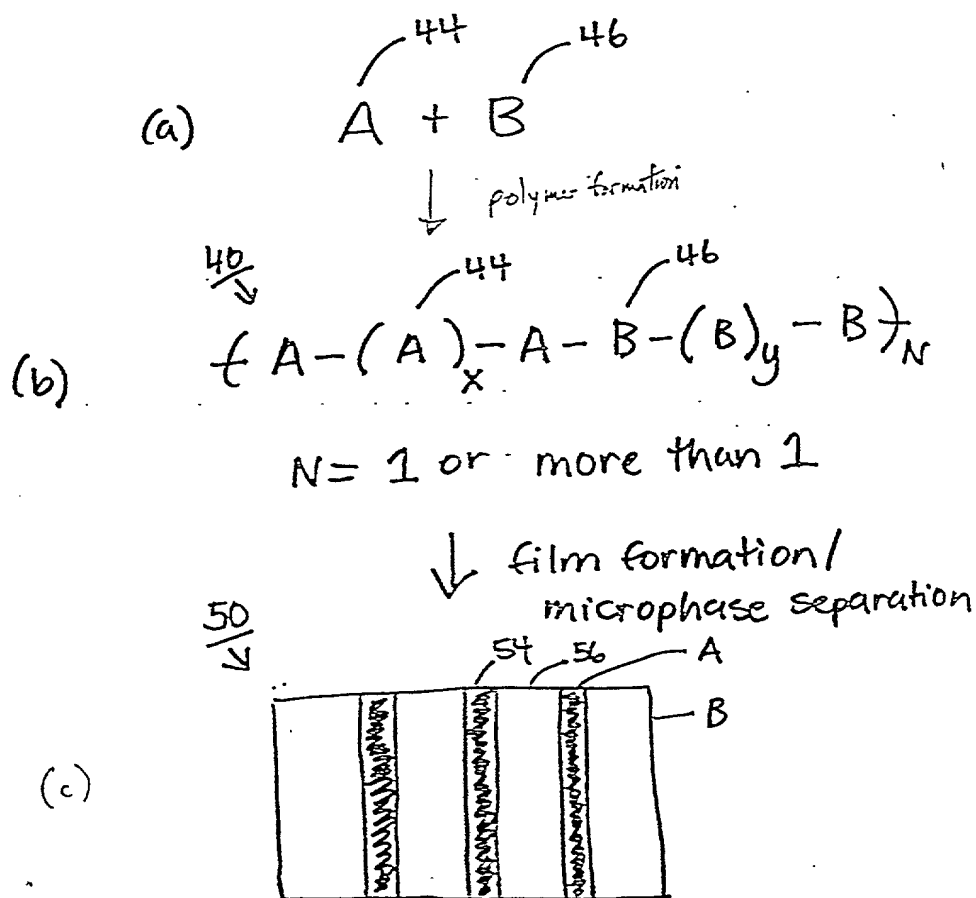 44 46
(a) A + B
polymer formation
40 44 46
(b) ( A - ( A )x - A - B - (B)y - B )N
N = 1 or more than 1
film formation/
microphase separation
50
54 56 A
B
(c)